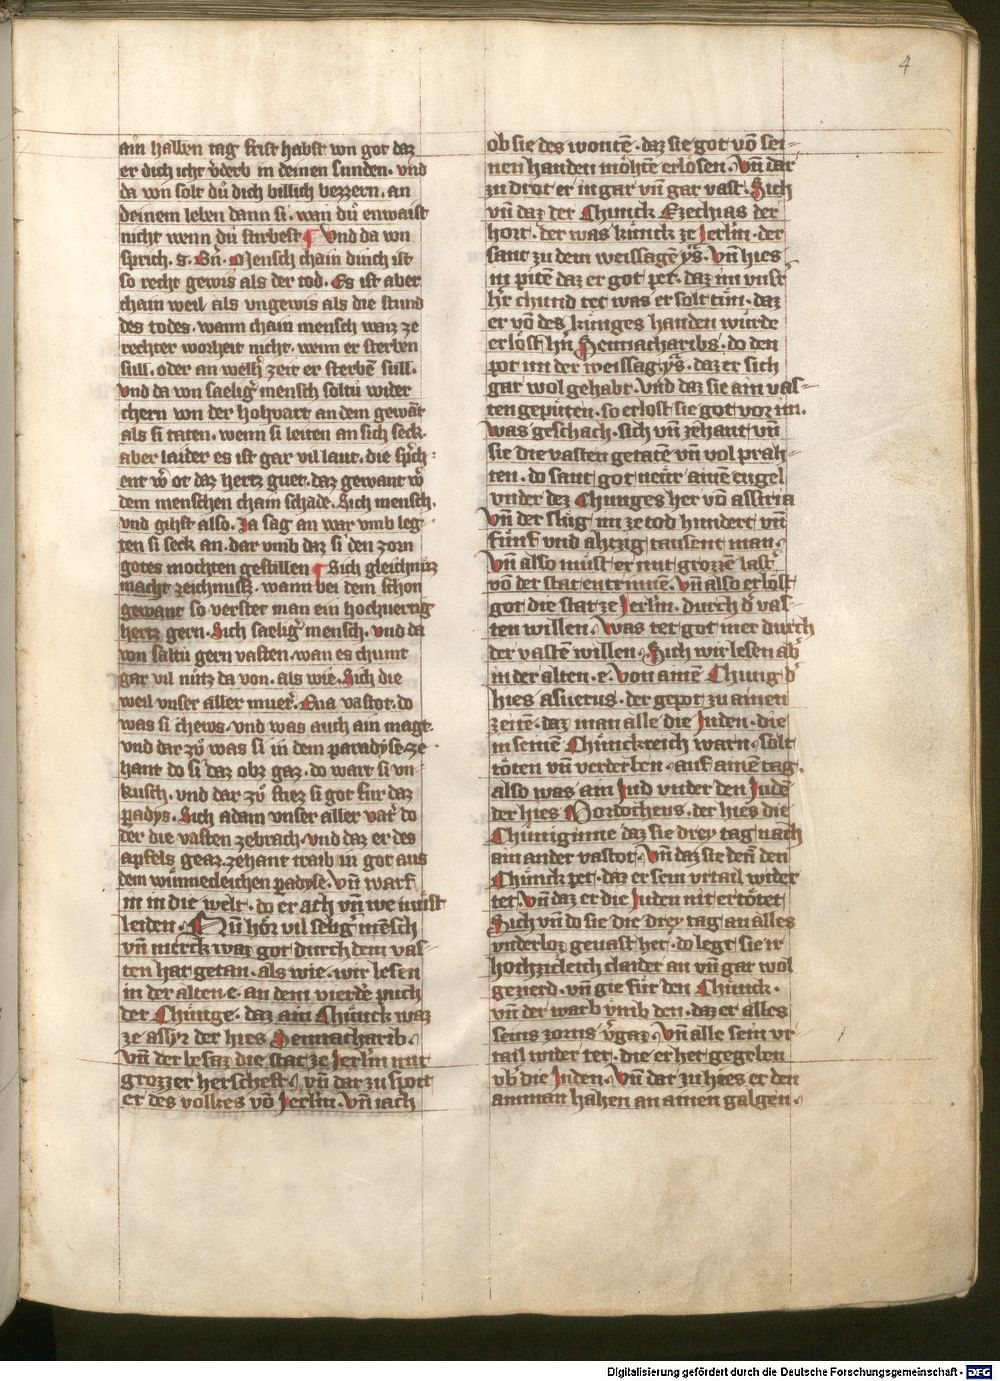 4
ain halben tag frist habst von got daz
er dich icht v̓derb in deinen sunden. vnd
da von solt du̇ dich billich bezzern. an
deinem leben dann si. wan du̇ enwaist
nicht wenn du̇ starbest ¶ Vnd da von
sprich. s. Bn̄. Mensch chain dinch ist
so recht gewis als der tod. Es ist aber
chain weil als vngewis als die stund
des todes. wann chain mensch waiz ze
rechter worheit nicht. wenn er sterben
sull. oder an welh̓ zeit er sterbē sull.
vnd da von saelig̓ mensch soltu wider
chern von der hohvart an dem gewāt
als si taten. wenn si leiten an sich seck.
aber laider es ist gar vil laut. die sp̓ch
ent w̓ ot daz hertz guet. daz gewant w̓
dem menschen chain schade. Sich mensch.
vnd gihst also. Ja sag an war vmb leg
ten si seck an. dar vmb daz si den zorn
gotes mochten gestillen ¶ Sich gleichnuz
macht zeichnusz. wann bei dem schon
gewant so verstet man ein hochvertig
hertz gern. Sich saelig̓ mensch. vnd da
von saltu gern vasten. wan es chumt
gar vil nu̇tz da von. als wie. Sich die
weil vnser aller muet̓. Eua vastot. do
was si chews. vnd was auch ain magt.
vnd dar zu̇ was si in dem paradyse. ze
hant do si daz obz gaz. do wart si vn
kusch. vnd dar zu̇ stiez si got fur daz
padys. Sich adam vnser aller vat̓ do
der die vasten zebrach. vnd daz er des
apfels geaz. zehant traib in got aus
dem wu̇nnecleichen padyse. Vn̄ warf
in in die welt. do er ach vn̄ we mu̇st
leiden. Nu̇ ho̊r vil selig̓ mēsch
vn̄ merck waz got durch dem vas
ten hat getan. als wie. wir lesen
in der alten. e. an dem vierdē puch
der Chu̇nge. daz ain Chu̇nck waz
ze assyr der hies Sennacharib.
Vn̄ der besaz die stat ze Jerlm̄ mit
grozzer herscheft. vn̄ dar zu spott
er des volkes vō Jerlm̄. Vn̄ iach
ob sie des wontē. daz sie got vō sei
nen handen mo̊htē erlo̊sen. Vn̄ dar
zu drot er in gar vn̄ gar vast. Sich
vn̄ daz der Chunck Ezechias der
hort. der was ku̇nck ze Jerlm̄. der
sant zu dem weissagē ys̓. Vn̄ hies
in pitē daz er got pet. daz im vnser
h̓r chund tet was er solt tu̇n. daz
er vō des kunges handen wurde
erlo̊st h̓n Sennacharibs. do den
pot im der weissag ys̓. daz er sich
gar wol gehabt. vnd daz sie ain vas
ten geputen. so erlost sie got vor im.
Was geschach. sich vn̄ zehant vn̄
sie die vasten getatē vn̄ vol prah
ten. do sant got neu̇r ainē engel
vnder dez Chunges her vō assiria
Vn̄ der slu̇g im ze tod hundert vn̄
fu̇nf vnd ahtzig tausent man.
Vn̄ also must er mit grozzē last̓
vō der stat entrinnē. Vn̄ also erlost
got die stat ze Jerlm̄. durch d̓ vas
ten willen. Was tet got mer durch
der vastē willen. Sich wir lesen ab̓
in der alten. e. Von ainē Chung d̓
hies asuerus. der gepot zu ainen
zeitē. daz man alle die Juden. die
in seinē Chu̇nckreich warn. solt
to̊ten vn̄ verderben. auf ainē tag.
also was ain Jud vnder den Judē
der hies Mordocheus. der hies die
Chu̇niginne daz sie drey tag nach
ain ander vastot. Vn̄ daz sie den̄ den
Chu̇nck pet. daz er sein vrtail wider
tet. Vn̄ daz er die Juden nit erto̊tet
Sich vn̄ do sie die drey tag an alles
vnderloz geuast het. do legt sie ir
hochzicleich claider an vn̄ gar wol
gezierd. vn̄ gie fur den Chu̇nck.
vn̄ der warb vmb den. daz er alles
seins zorns v̓gaz. Vn̄ alle sein vr
tail wider tet. die er het gegeben
vb̓ die Juden. Vn̄ dar zu hies er den
amman hahen an ainen galgen.
Digitalisierung gefördert durch die Deutsche Forschungsgemeinschaft - DFG